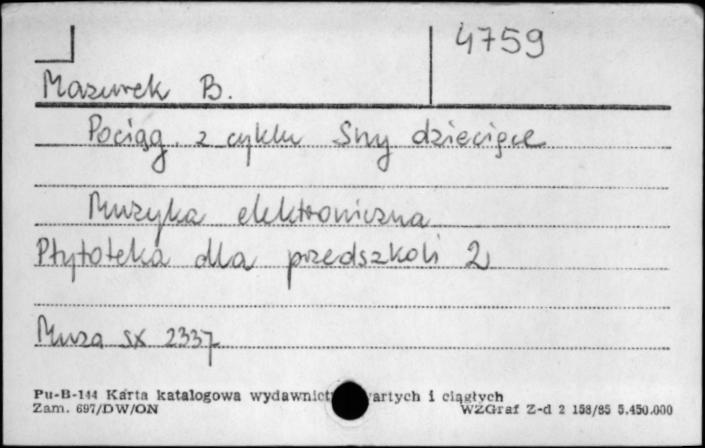 4759
Mazurek B.
Pociąg. z cyklu Sny dziecięce
Muzyka elektroniczna
Płytoteka dla przedszkoli 2
Muza SX 2337
Pu-B-144 Karta katalogowa wydawnict wartych i ciągłych
Zam. 697/DW/ON WZGraf Z-d 2 158/85 5.450.000